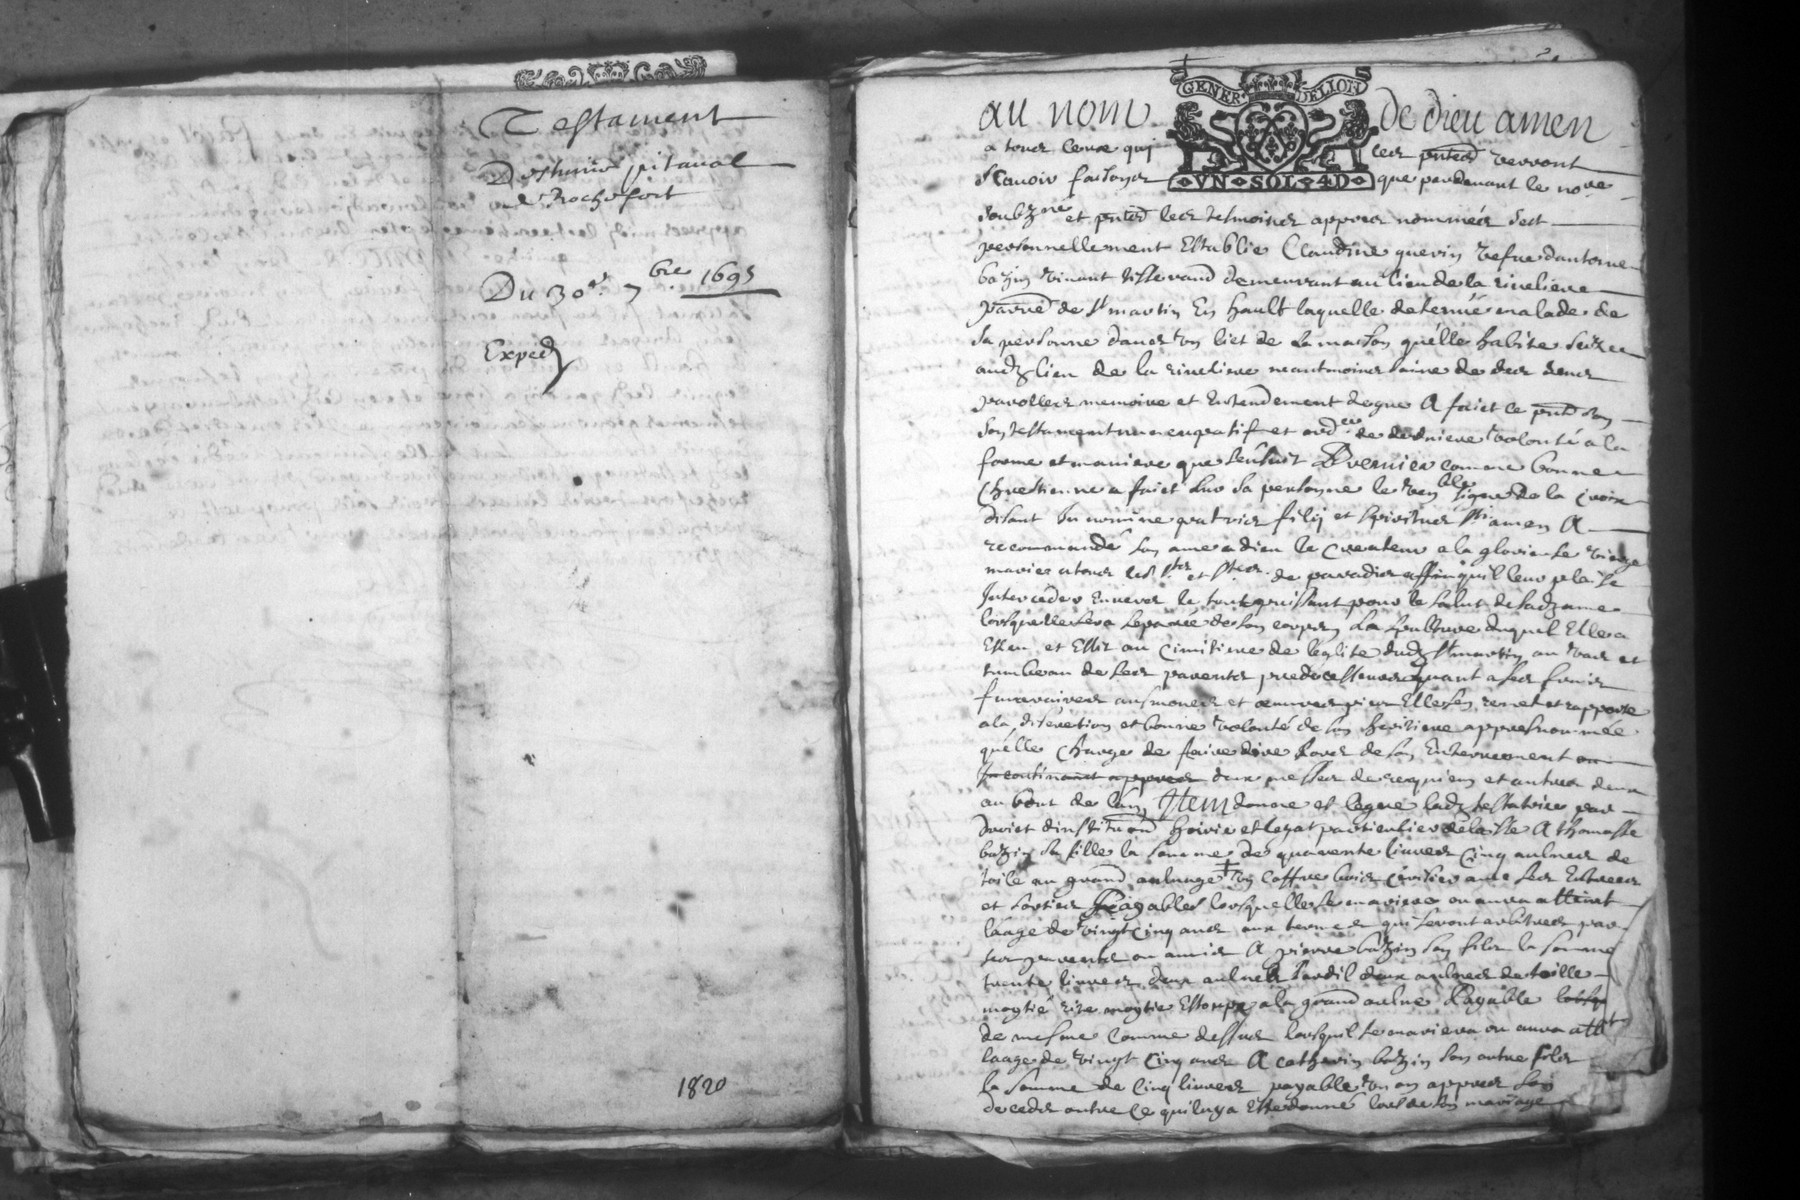 Testament
pitaval
de Rochefort
Du 30e 7bre 1695
Exped
1820
GENER DELION
VN SOL 4D
au nom de dieu amen
a tous ceux qui ces pntes verront
Scavoir faisons que pardevant le nore
soubzne et pnts les tesmoins appres nommés sest
personnellement Establie Claudine quevin vefve dantoine
bazin vivant tisserand demeurant au lieu de la riveliere
parre de st martin En hault laquelle detenue malade de
sa personne dans son lict de la maison quelle habite size
audz lieu de la riveliere neantmoins saine de ses sens
parolles memoire et Entendement degre A faict ce pnt son
son testament nuncupatif et ordce de derniere volonté a la
forme et maniere que sensuit Premier comme bonne
Chrestienne a faict sur sa personne le venble signe de la croix
disant In nomine patris filij et spiritus sti amen A
recommandé son ame a dieu le createur a la glorieuse vierge
marie a tous les sts et stes de paradis affin quil leur plaise
Interceder Envers le tout puissant pour le salut de sadz ame
lorsquelle sera separée de son corps La sepulture duquel Elle a
Esleu et Eslit au cimitiere de leglise dudz st martin au vas et
tumbeau de ses parents predecesseurs quant a ses frais
funeraires ausmones et oeuvres pies Elle sen remet et rapporte
a la discretion et bonne volonté de son heritiere appres nommée
quelle charge de faire dire lors de son Enterrement
Incontinant appres deux messes de requiem et autres deux
au bout de lan Item donne et legue ladz testatrice par
droict dinstituon hoirie et legat particulier delaisse A thomasse
bazin sa fille la somme de quarente livres cinq aulnes de
toile au grand aulnage + un coffre bois avec ses Entrees
et sorties Payables lorsquelle se mariera ou aura attint
laage de vingt cinq ans aux termes qui seront arbitres par
ses parents ou amis A pierre bazin son fils la somme
trente livres deux aulnes deux aulnes de toille
moytié rite moytié Estoupe a la grand aulne Payable
de mesme comme dessus lorsquil se mariera ou aura att
laage de vingt cinq ans A catherin bazin son autre fils
la somme de cinq livres payable un an appres son
deceds outre ce qui luy a Esté donné lors de son mariage